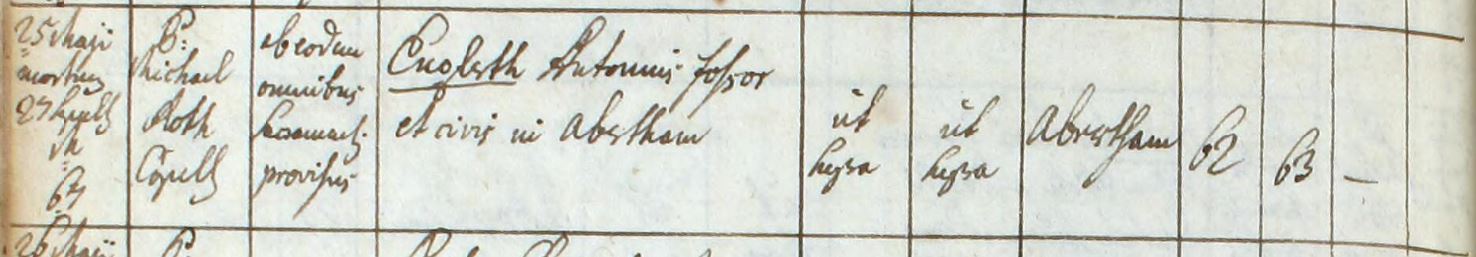 25 Maji
mortuus
27 Sepult
P:
Michael
Roth
Capell
ab eodem
omnibus
Sacramentl:
provisus
Englerth Antonius fossor
et civis in Abertham
ut
supra
ut
supra
Abertham
62
63
—
26 Maji
P: